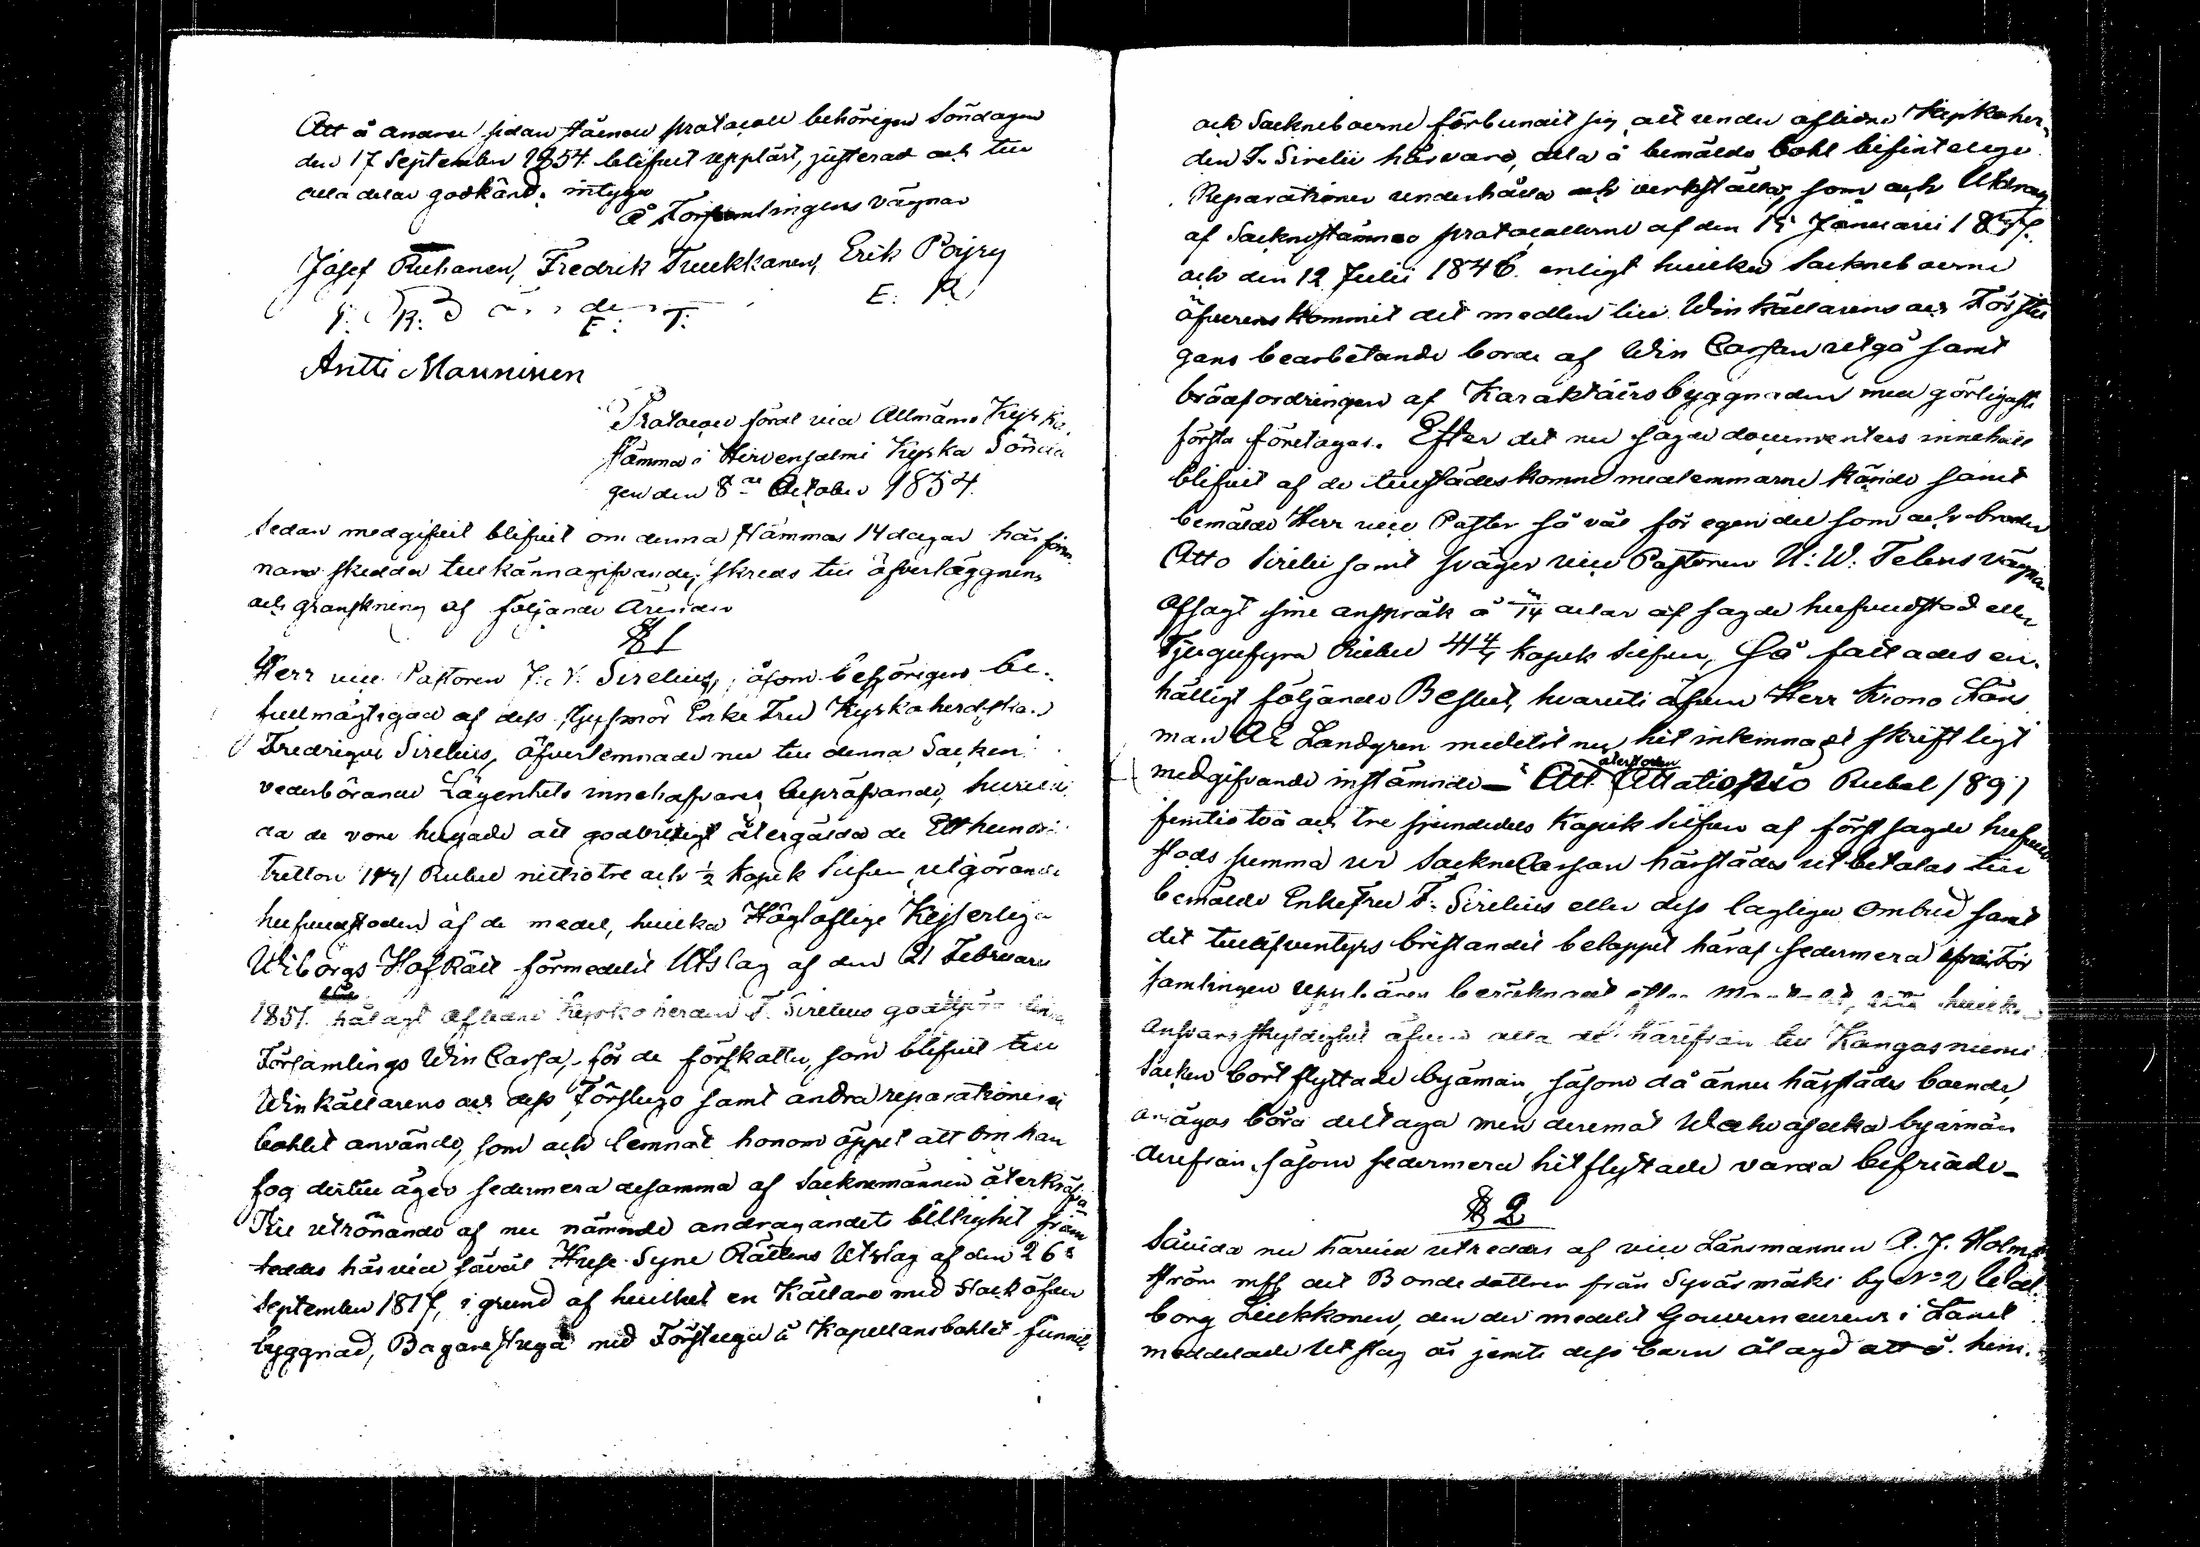 Att å andra sidan stående protocoll behörigen Söndagen
den 17 September 1854 blifvit uppläst, justerad och till
alla delar godkänd; intyga
å Församlingens vägnar
Josef Ruhanen, Fredrik Tuukkanen, Erik Pöyry
J. R. E. T. E. P.
Antti Manninen
Protocoll fördt vid Allmänna Kyrko
stämma i Hirvensalmi Kyrka Sönda
gen den 8de October 1854.
Sedan medgifvit blifvit om denna stämmas 14 dagar härförin
nan skedda tillkännagifvande, skreds till öfverläggning
och granskning af följande Ärender
§ 1
Herr vice Pastoren J. V. Sirelius, såsom behörigen be-
fullmägtigad af dess styfmor Enke Fru Kyrkoherdskan
Fredrique Sirelius, öfverlemnade nu till denna Socken
vederbörande Lägenhets innehafvares bepröfvande, huruvi
da de vore hugade att godvilligt återgälda de Etthundra
tretton 113/ Rubel nittiotre och ½ Kopek Silfver utgörande
hufvudstolen af de medel, hvilka Högloflige Kejserliga
Wiborgs HofRätt förmedelst Utslag af den 21 Februari
1851. ålagt aflidne Kyrkoherden F. Sirelius godtgöra denna
Församlings Win Cassa, för de förskotter, som blifvit till
Winkällarens och dess Förstugo samt andra reparationer å
bohlet använde, som och lemnat honom öppet att om han
fog dertill äger sedermera desamma af Socknemännen återkräfva
Till utrönande af nu nämnde andragandets billighet fram
teddes härvid såväl Huse Syne Rättens Utslag af den 26
September 1817, i grund af hvilket en Källare med Stock öfver
byggnad, Bagarestuga med Förstuga å Kapellansbohlet funnits
och Sockneboerne förbundit sig att under aflidne Kyrkoher-
den F. Sirelii härvaro, alla å bemälde bohl befintelige
Reparationer underhålla och verkställa, som och Utdrag
af Sockenstämmo protocollerne af den 15 Januarii 18
och den 12 Julii 1846. enligt hvilka Sockneboerne
öfverenskommit det medlen till Winkällarens och Förstu
gans bearbetande borde af Win Cassan utgå samt
brädfordringen af Karaktärsbyggnaden med görligaste
första företagas. Efter det nu sagde documenters innehåll
blifvit af de tillstädeskomne medlemmarne kände samt
bemälde Herr vice Pastor så väl för egen del som och brodren
Otto Sirelii samt svåger vice Pastoren N: W: Telens vägnar
afsagt sine anspråk å /14 delar af sagde hufvudstol eller
Tjugufyra Rubel 41 4/7 Kopek Silfver, Så fattades en-
hälligt följande Beslut, hvaruti äfven Herr Krono Läns
man A E Landgren medelst nu hit inlemnadt skriftligt
medgifvande instämnde— Att återstoden Åttationio Rubel /89/
femtiotvå och tre sjundedels Kopek Silfver af först sagde hufvud
stols summa ur SockneCassan härstädes utbetalas till
bemälde EnkeFru F. Sirelius eller dess laglige ombud samt
det tilläfventyrs bristandet beloppet häraf sedermera ifrån För
samlingen uppbäres beräknadt efter
ansvarsskyldighet äfven alla de härifrån till Kangasniemi
Socken bortflyttade byamän, såsom då ännu härstädes boende,
anägas böra deltaga men deremot Wahvaselkä byamän
derifrån, såsom sedermera hitflyttade varda befriade—
§ 2
Såvida nu härvid utreddes af vice Länsmannen A. J. Holm
ström mfl att Bondedottren från Syväsmäki by No 2 Wal
borg Liukkonen, den der medelst Gouverneurens i Länet
meddelade Utslag är jemte dess barn ålagd att å hem-